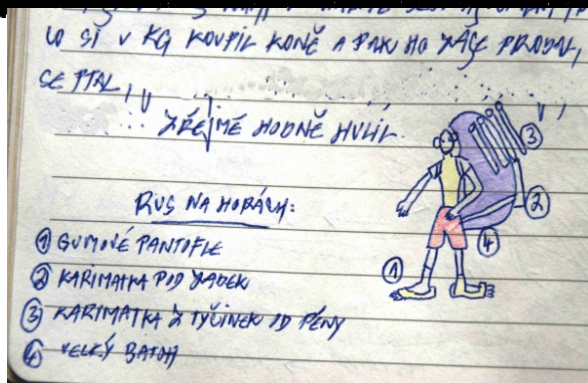 CO SI V KG KOUPIL KONĚ A PAK HO ZASE PRODAL,
SE PTAL,
ZŘEJMĚ HODNĚ HULIL.
RUS NA HORÁCH:
① GUMOVÉ PANTOFLE
② KARIMATKA POD ZADEK
③ KARIMATKA Z TYČINEK OD PĚNY
④ VELKÝ BATOH
③
②
④
①